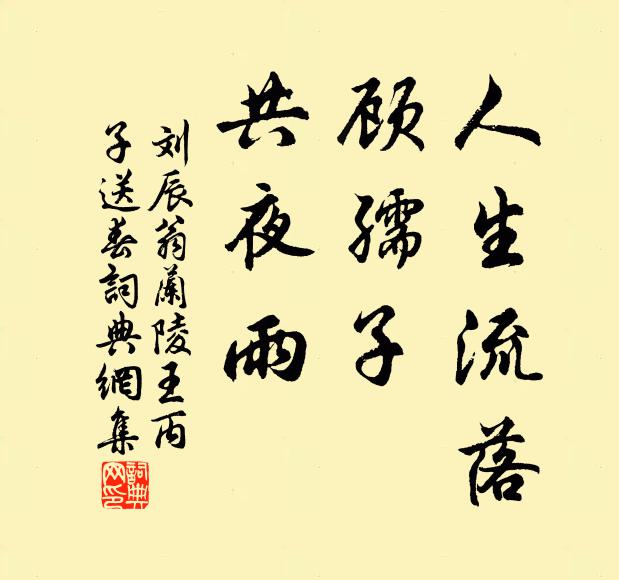 人生流落
顾孺子
共夜雨
刘辰翁蘭陵王丙
子送春詞典網集
詞典
网印